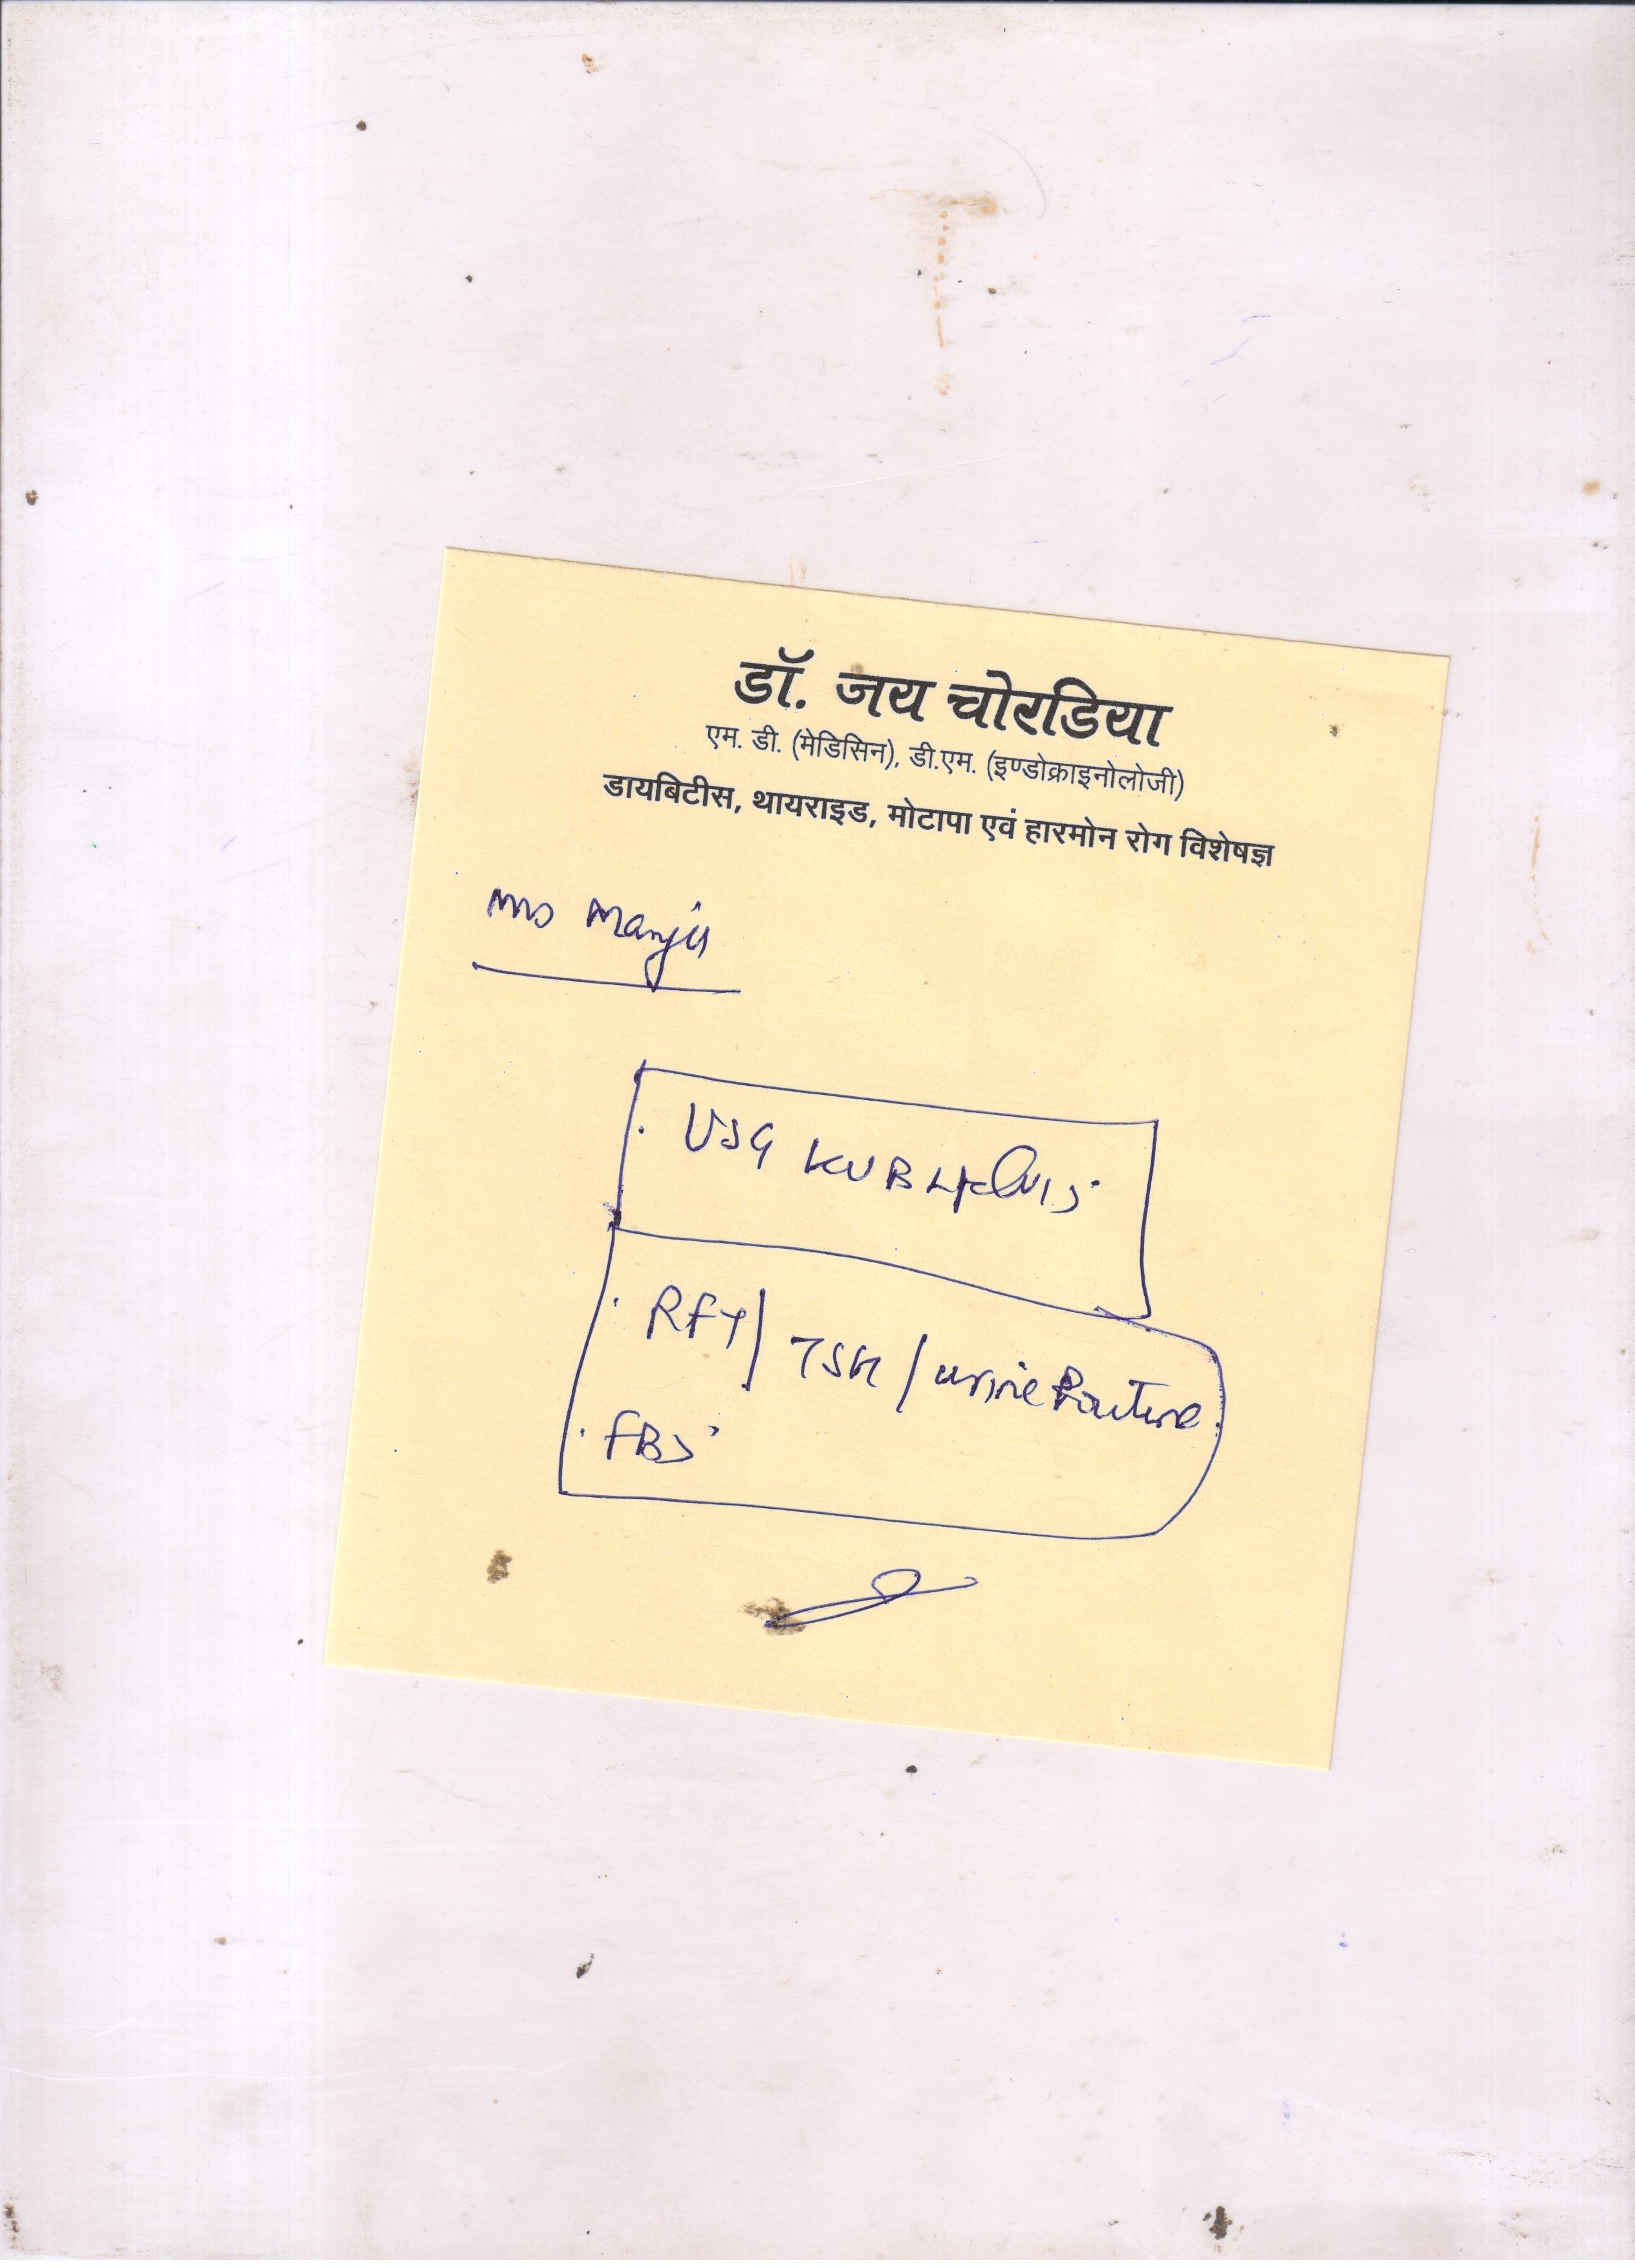 डॉ. जय चोरडिया
एम. डी. (मेडिसिन), डी.एम. (इण्डोक्राइनोलोजी)
डायबिटीस, थायराइड, मोटापा एवं हारमोन रोग विशेषज्ञ
Mrs Manju
USG KUB + Pelvis
RFT / TSH / urine Routine
FBS